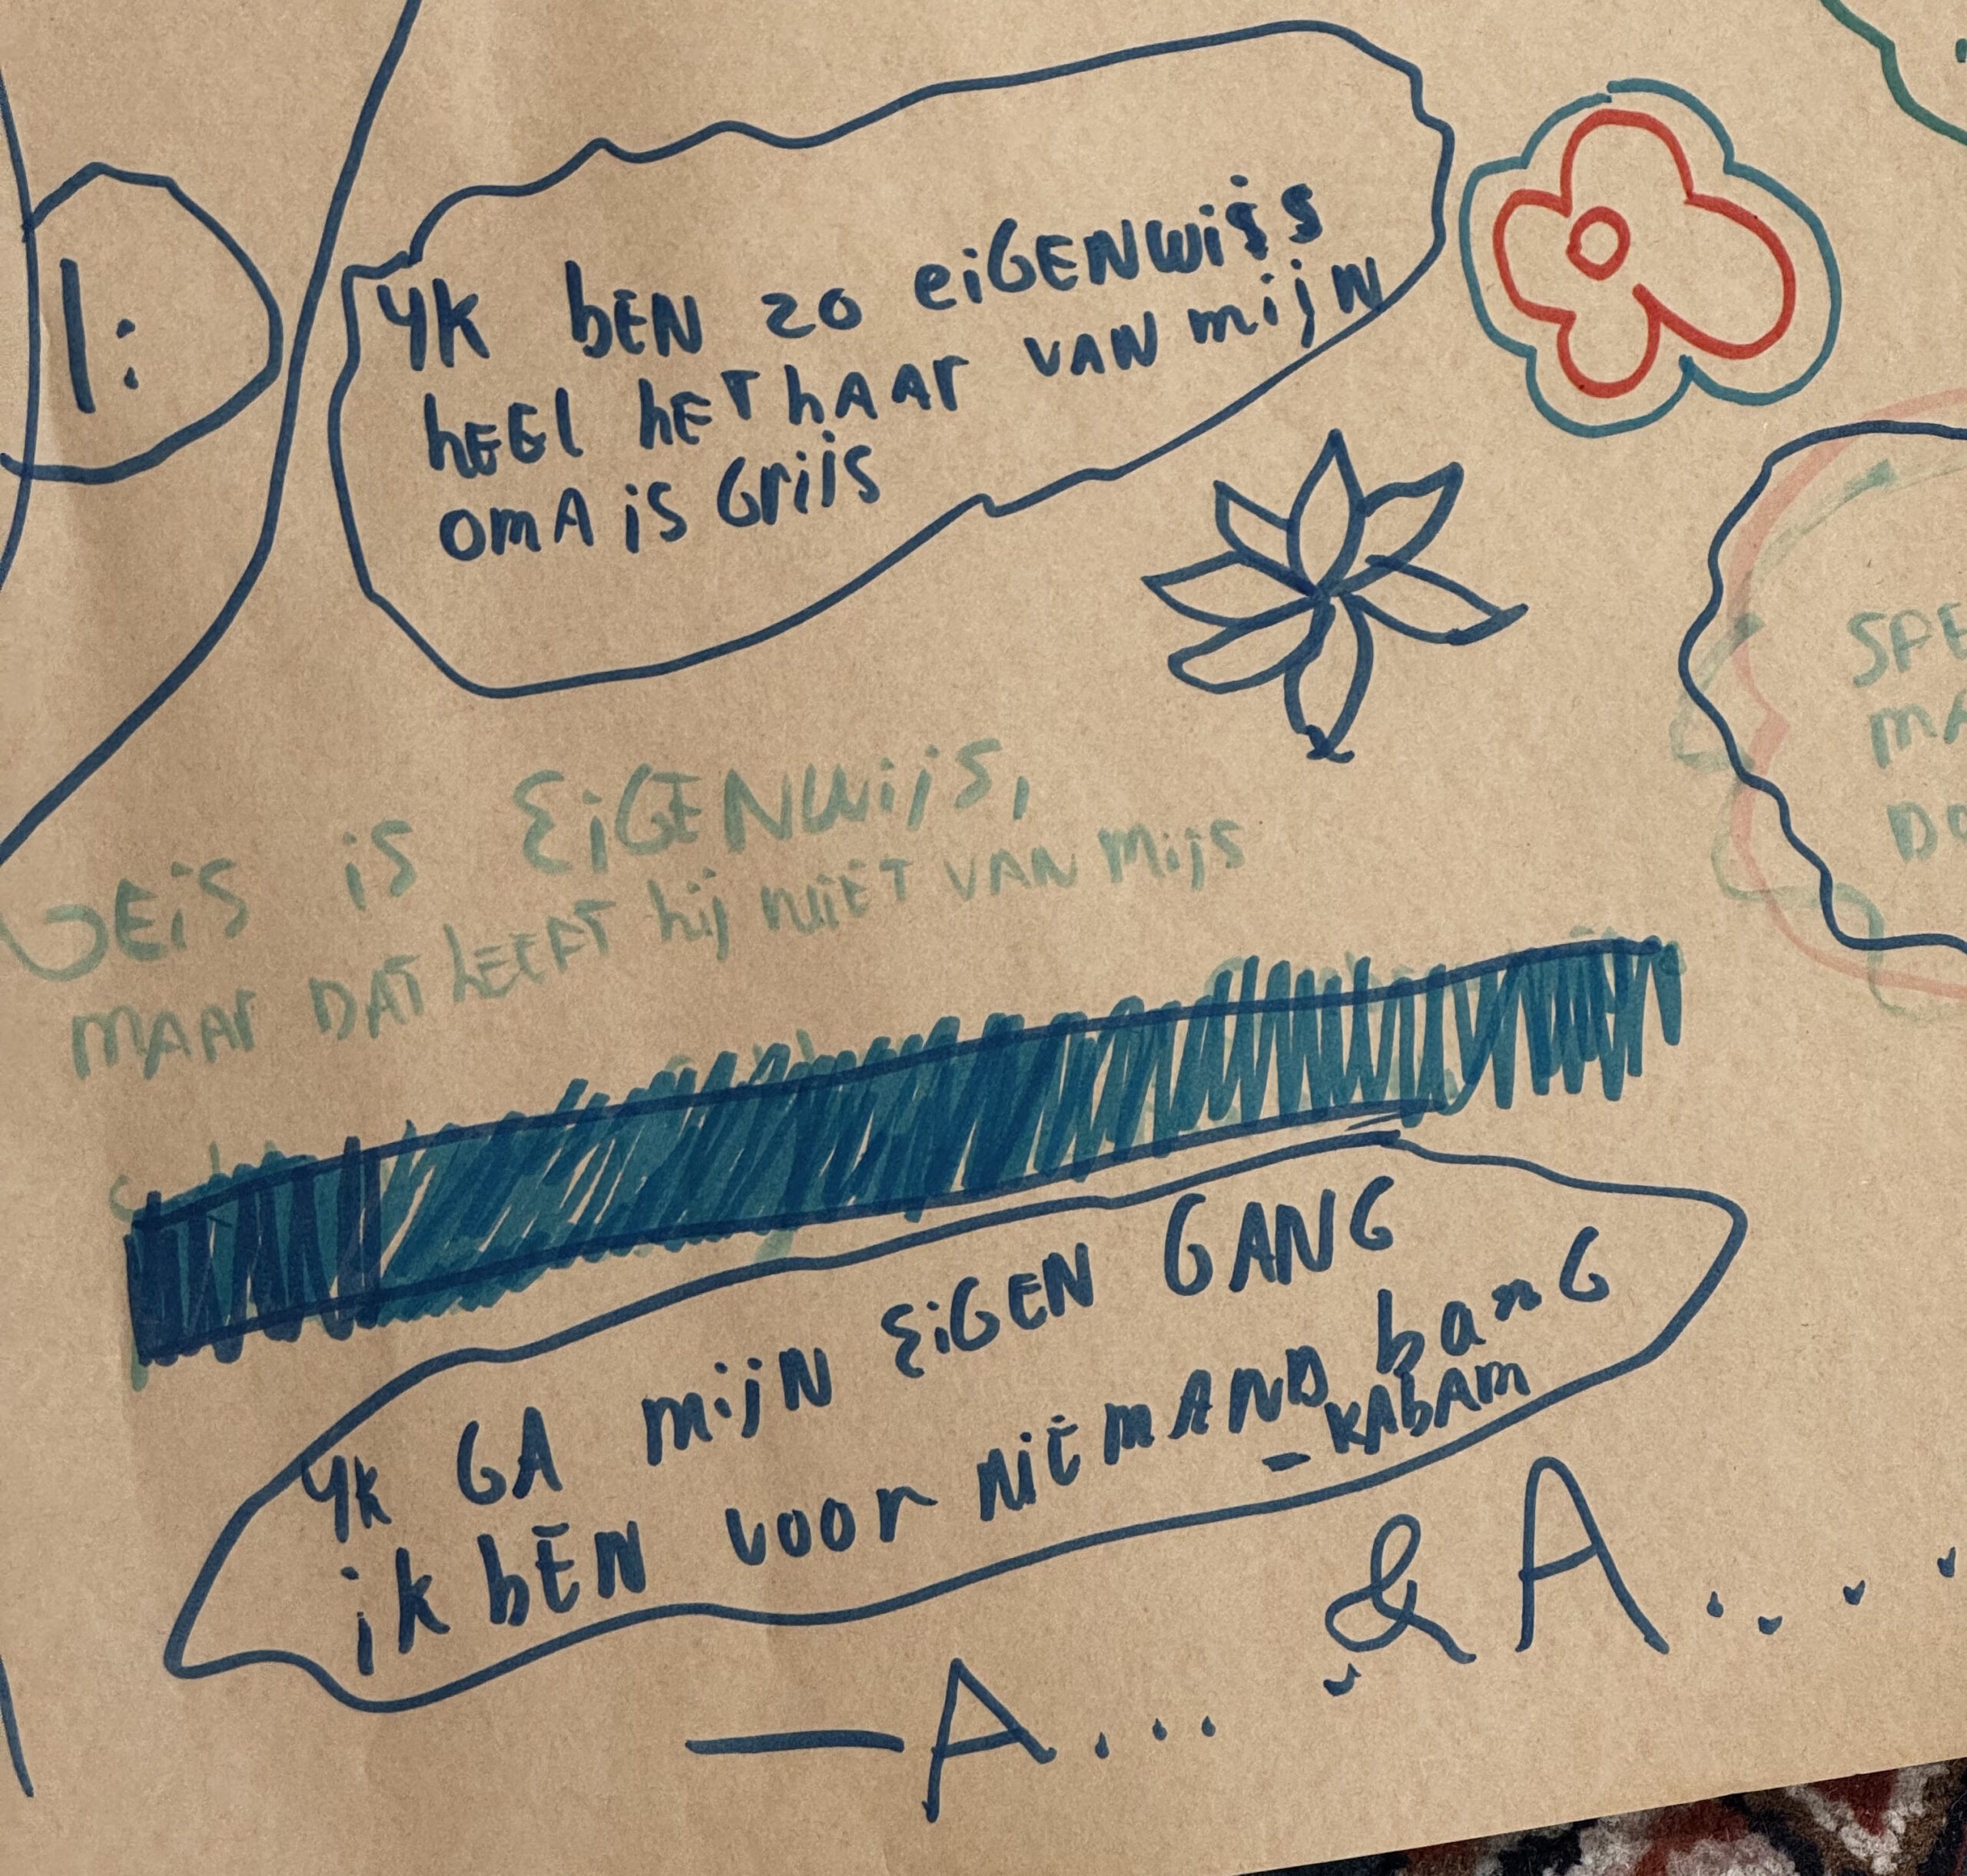 I:
YK bEN zo eiGENwijs
hEEl hET hAAr VAN mijN
omA is Grijs
GEiS is EiGENWijS,
mAAr DAT hEEFT hij NiET VAN Mijs
YK GA mijN EiGEN GANG
ik bEN voor NiEmAND banG
- KAbAm
- A...
& A....
SPE
MA
DO